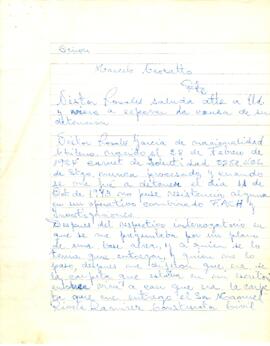 Señor
Marcelo
Pte
Nestor Rosales saluda atte a Ud
y viene a exponer la causa de su
detencion
Nestor Rosales Garcia de nacionalidad
chilena nacido el 28 de Febrero de
carnet de identidad
de Stgo, nunca procesado y cuando
se me fue a detener el dia 11 de
Oct de 1973 no puse resistencia alguna
en un operativo combinado FACH e
Investigaciones.
Despues del respectivo interrogatorio en
que se me preguntaba por un plano
de una base aerea, y a quien se lo
tenia que entregar, y quien me lo
paso, despues me dijeron que era
la carpeta que estaba en mi escritorio
entonces que era la carpe
ta que me entrego el Sr Manuel
Ramirez Constructor Civil